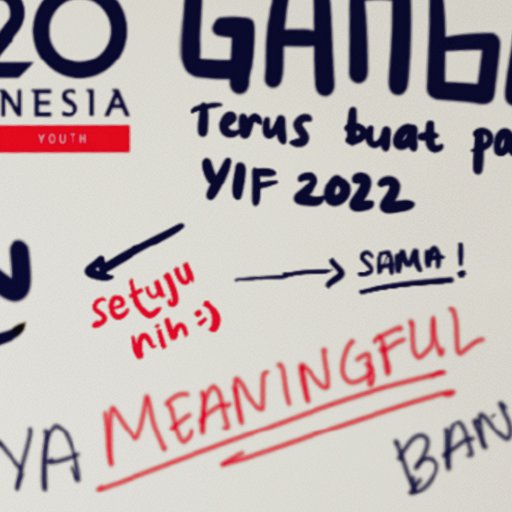 20
GAMB
NESIA
YOUTH
Terus buat pa
YIF 2022
setuju
nih :)
SAMA!
YA MEANINGFUL
BAN